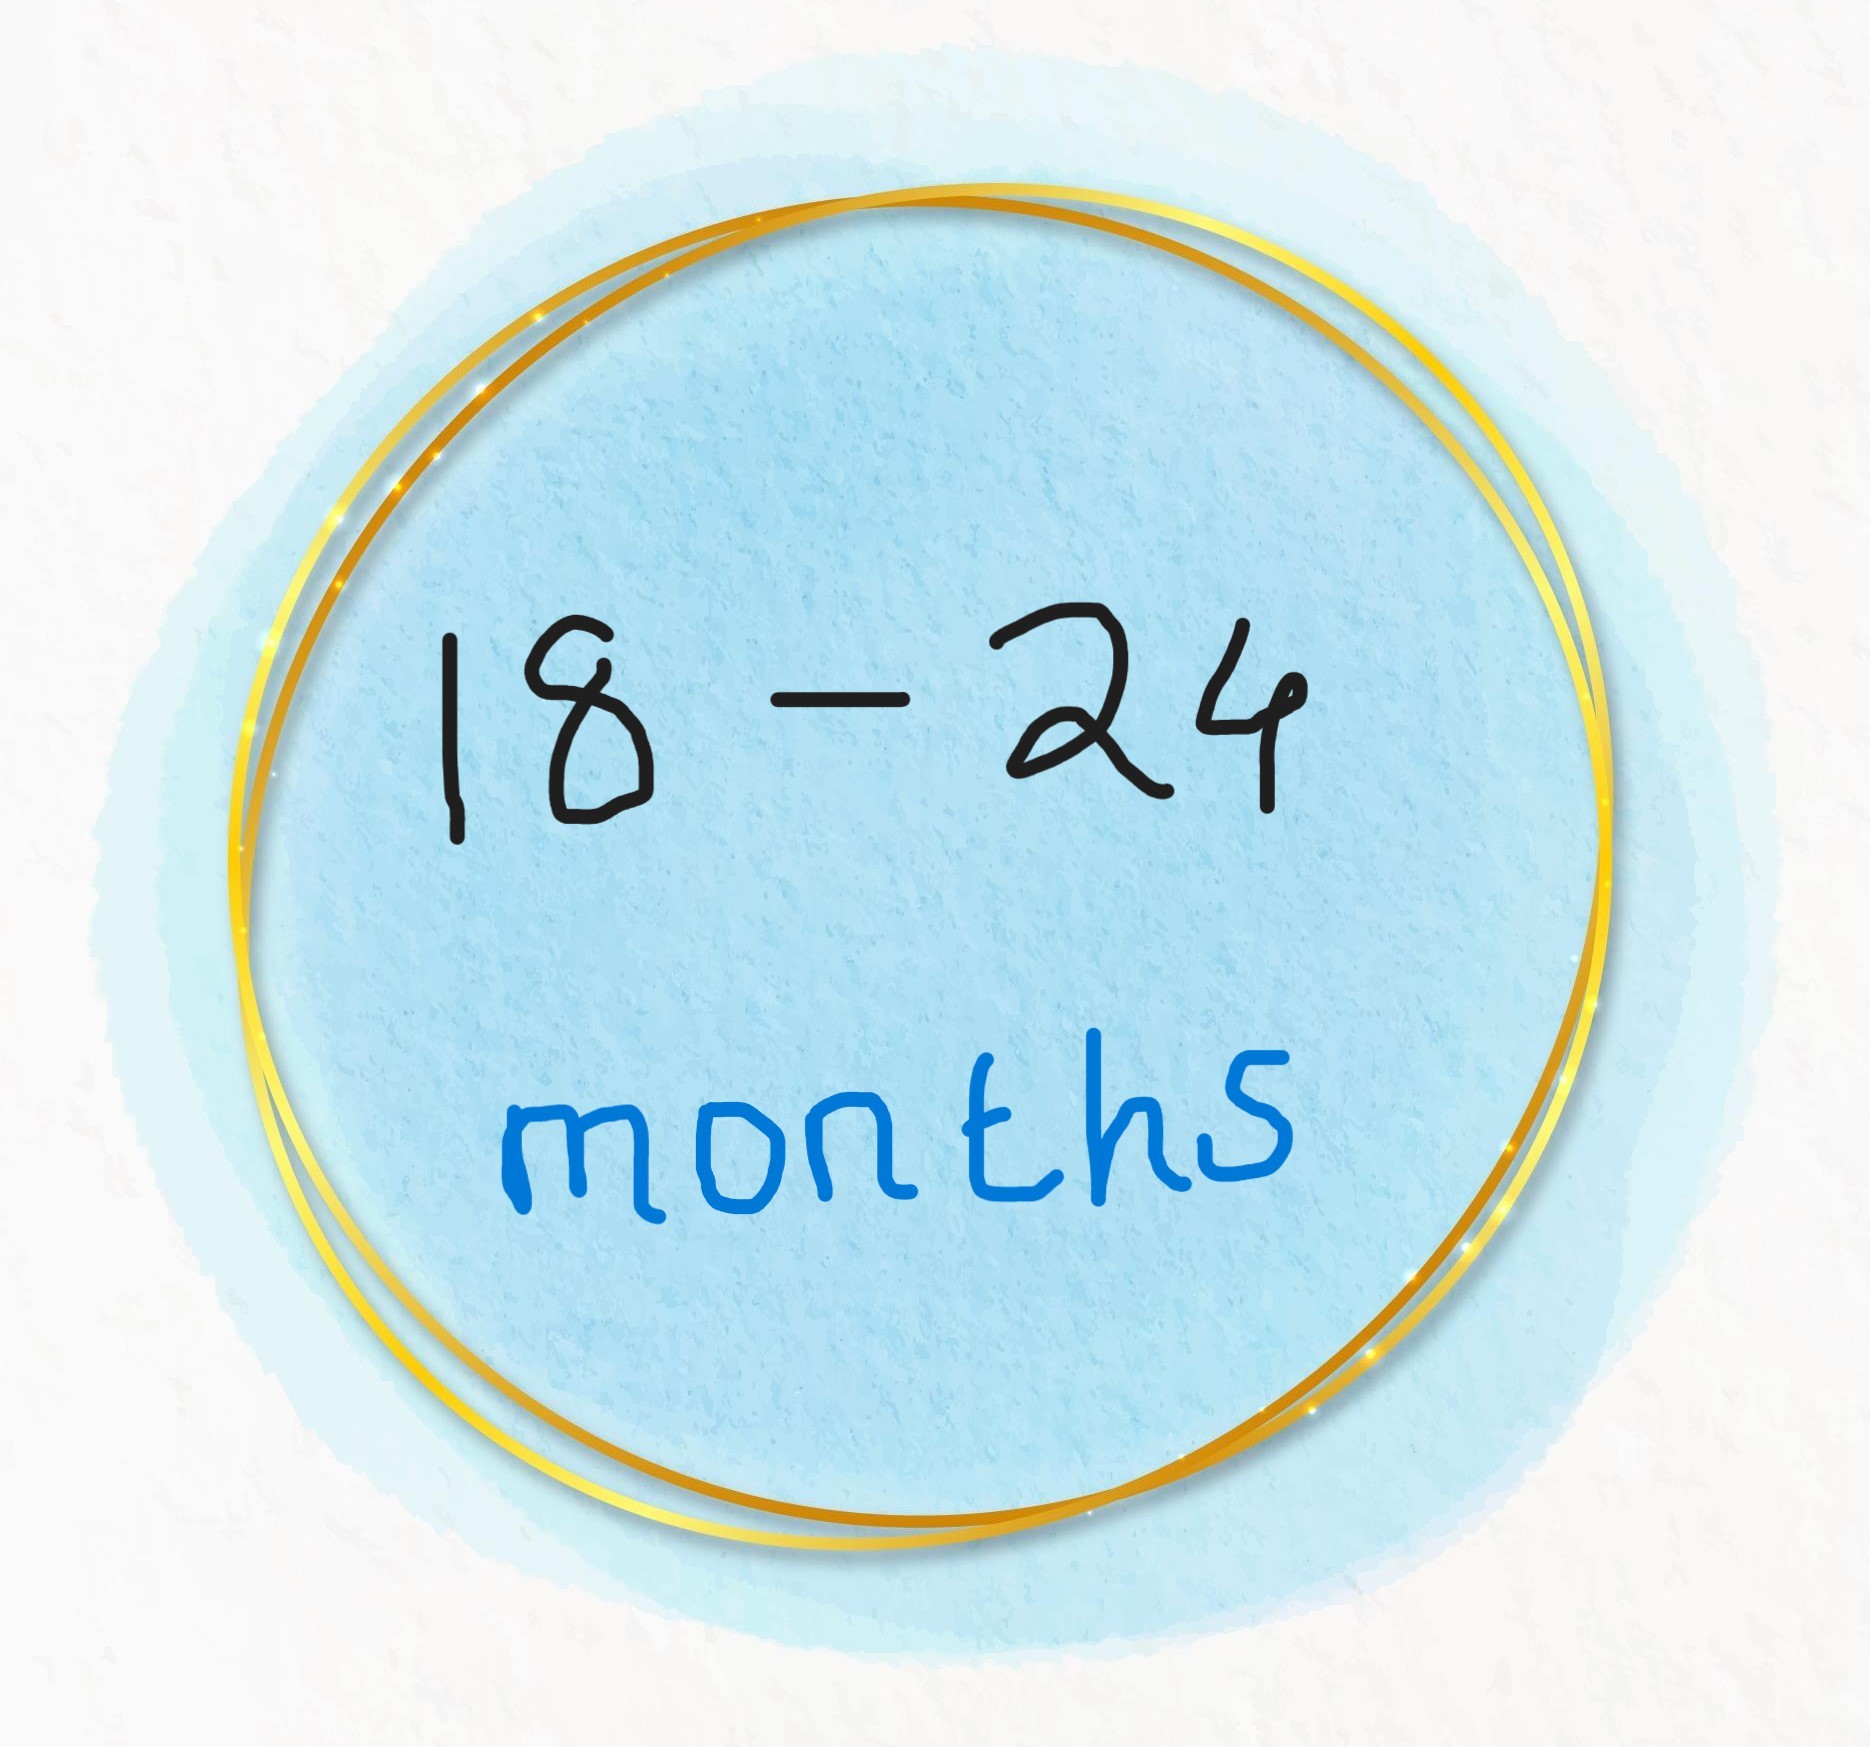 18 - 24
months